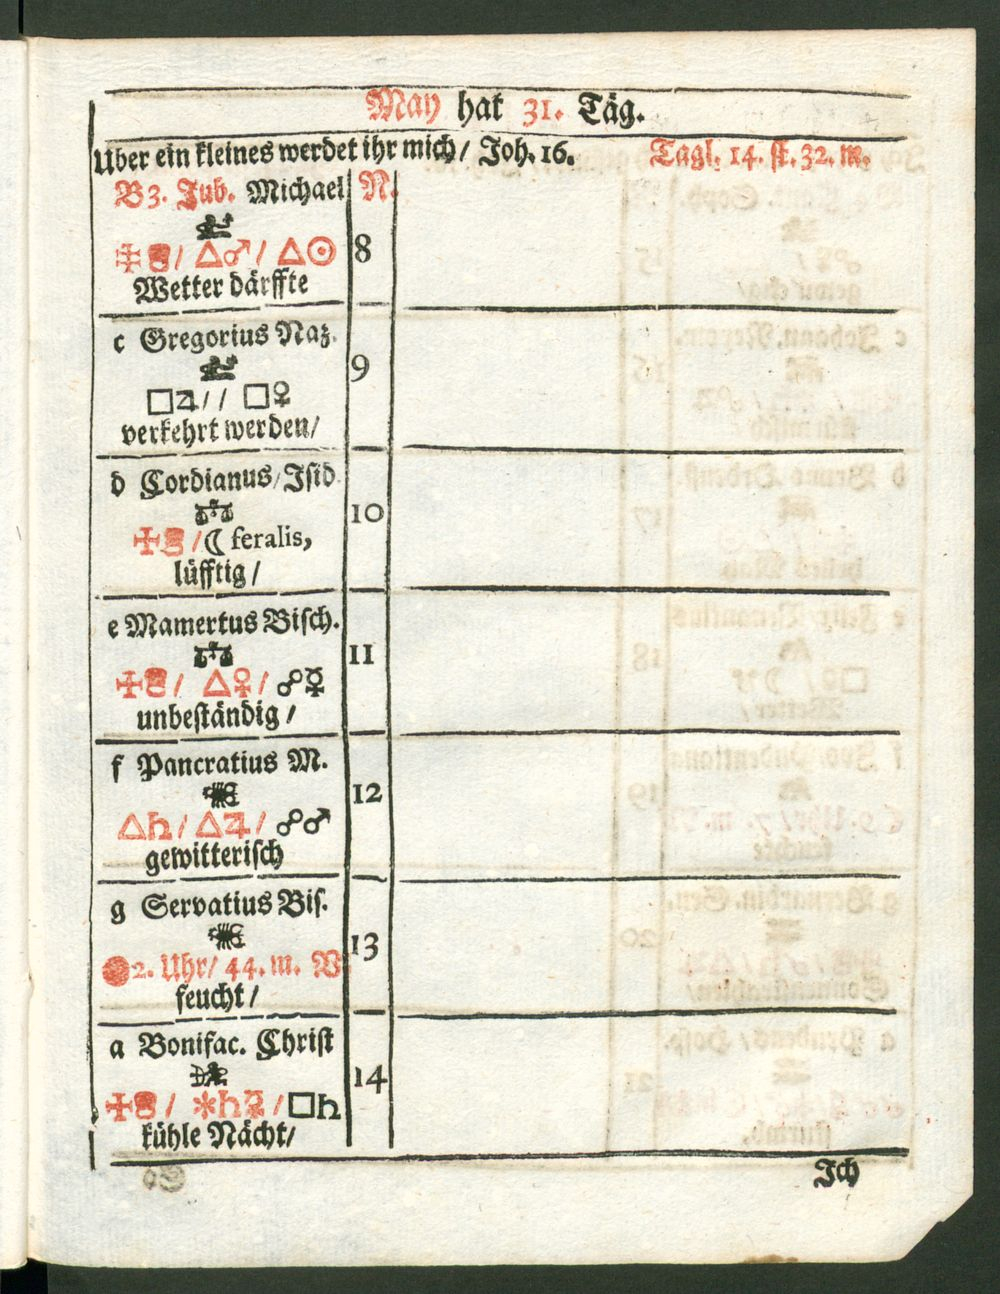 May hat 31. Täg.
Uber ein kleines werdet ihr mich/ Joh. 16. Tagl. 14. st. 32. m.
B 3. Jub. Michael N.
/ △♂/ △☉ 8
Wetter därffte
c Gregorius Naz.
9
□♃// □♀
verkehrt werden/
d Cordianus/ Isid.
10
/☾ feralis,
lüfftig/
e Mamertus Bisch.
11
/ △♀/ ☍☿
unbeständig/
f Pancratius M.
12
△♄/ △♃/ ☍♂
gewitterisch
g Servatius Bis.
13
2. Uhr/ 44. m. V.
feucht/
a Bonifac. Christ
14
/ /□♄
kühle Nächt/
Ich